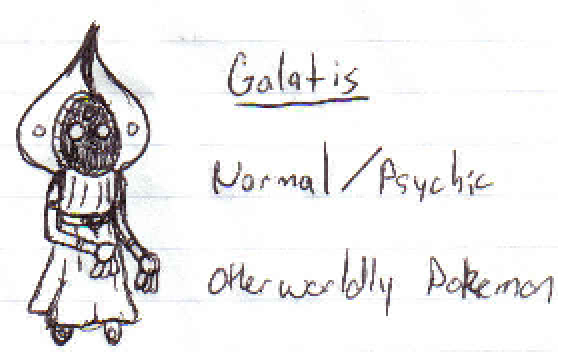 Galatis
Normal/Psychic
Otherworldly Pokemon